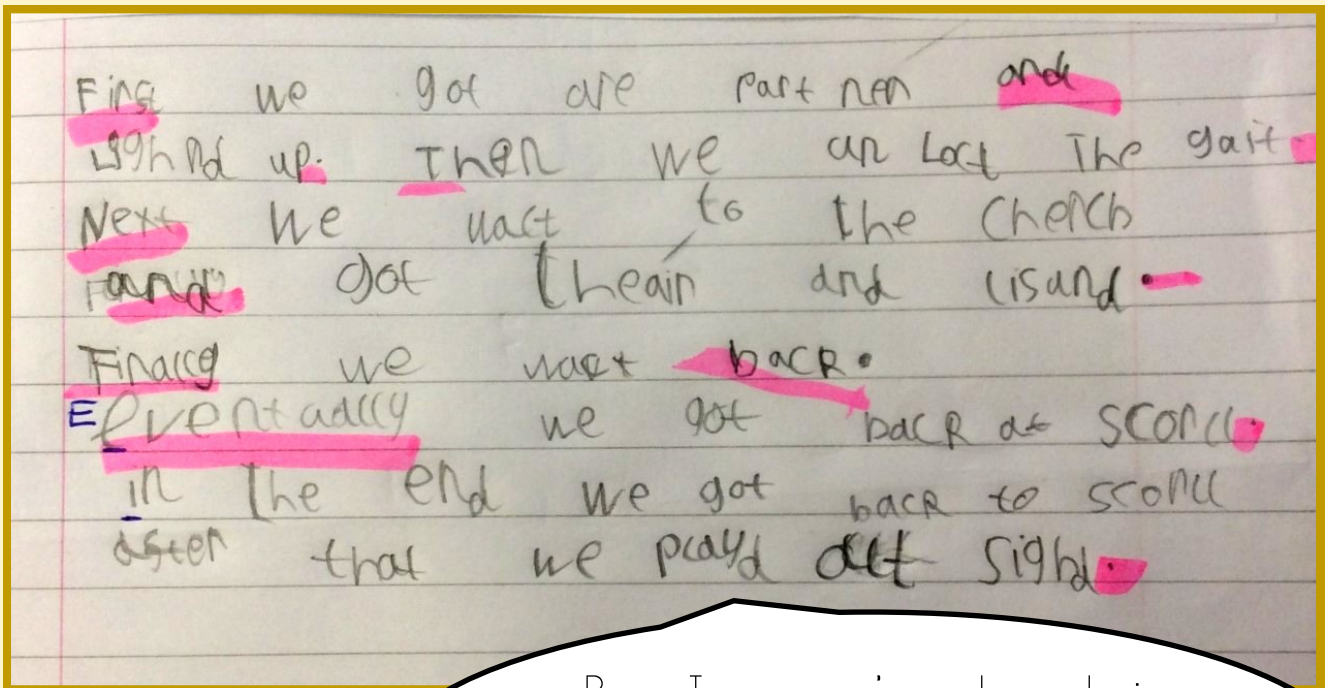 First we got are partner and
up. Then we un Loct The gait.
Next we wact to the Cherch
and got theair and lisand.
Finally we wact back.
E eventually we got back at scorll.
in The end we got back to scorll
after that we playd out sighd.